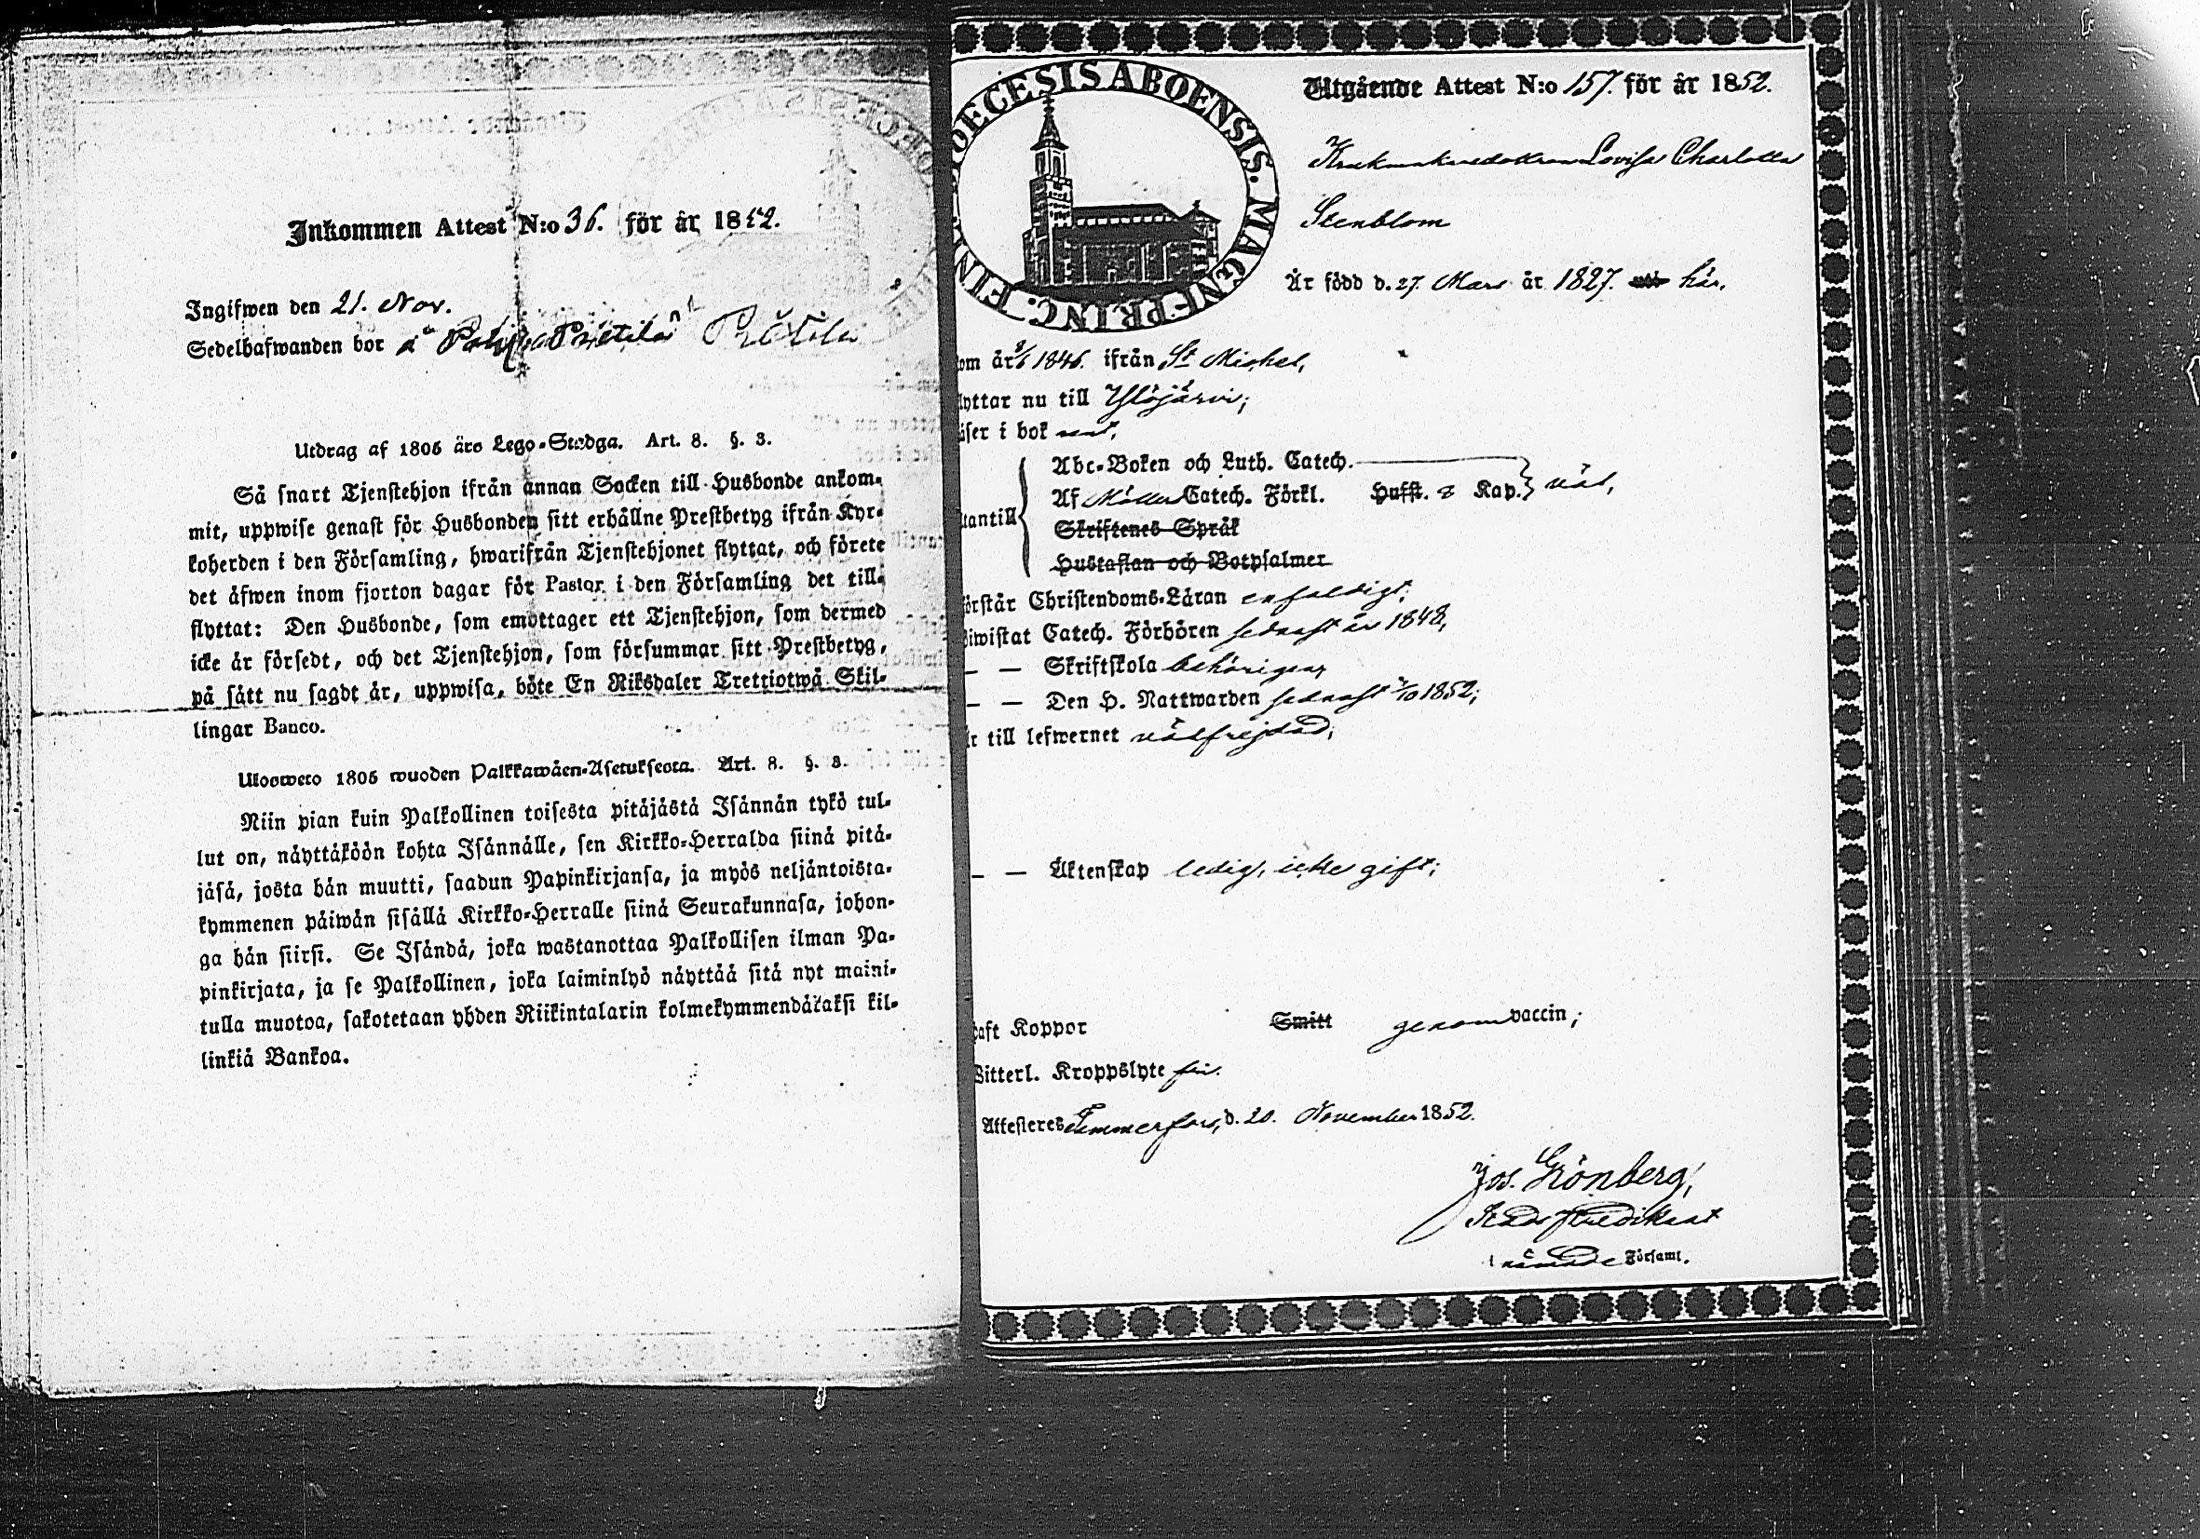 Inkommen Attest N:o 36. för år 1852.
Ingifwen den 21. Nov.
Sedelhafwanden bor å
Utdrag af 1805 års Lego-Stadga. Art. 8. §. 3.
Så snart Tjenstehjon ifrån annan Socken till Husbonde ankom-
mit, uppwise genast för Husbonden sitt erhållne Prestbetyg ifrån Kyr-
koherden i den Församling, hwarifrån Tjenstehjonet flyttat, och förete
det äfwen inom fjorton dagar för Pastor i den Församling det till-
flyttat: Den Husbonde, som emottager ett Tjenstehjon, som dermed
icke är försedt, och det Tjenstehjon, som försummar sitt Prestbetyg,
på sätt nu sagdt är, uppwisa, böte En Riksdaler Trettiotwå Skil-
lingar Banco.
Ulosweto 1805 wuoden Palkkawäen-Asetuksesta. Art. 8. §. 3.
Niin pian kuin Palkollinen toisesta pitäjästä Isännän tykö tul-
lut on, näyttäköön kohta Isännälle, sen Kirkko-Herralda siinä pitä-
jäsä, josta hän muutti, saadun Papinkirjansa, ja myös neljäntoista-
kymmenen päiwän sisällä Kirkko-Herralle siinä Seurakunnasa, johon-
ga hän siirsi. Se Isändä, joka wastanottaa Palkollisen ilman Pa-
pinkirjata, ja se Palkollinen, joka laiminlyö näyttää sitä nyt maini-
tulla muotoa, sakotetaan yhden Riikintalarin kolmekymmendäkaksi kil-
linkiä Bankoa.
DECESIS ABOENSIS. MAGN. PRINC. FIN
Utgående Attest N:o 157. för år 1852.
Lovisa Charlotta
Stenblom
Är född d. 27. Mars år 1827. här.
om år 1846. ifrån St Michel,
lyttar nu till Ylöjärvi;
äser i bok rent,
Abc-Boken och Luth. Catech.
Af Möllers Catech. Förkl. Hufst. 2 Kap. väl,
tantill
Skriftenes Språk
Hustaflan och Botpsalmer
örstår Christendoms-Läran enfaldigt;
iwistat Catech. Förhören sednast år 1848,
— — Skriftskola behörigen,
— — Den H. Nattwarden sednast 1852;
r till lefwernet välfrejdad;
— — Äktenskap ledig, icke gift;
aft Koppor Smitt genom vaccin;
Witterl. Kroppslyte fri.
Attesteres Tammerfors, d. 20. November 1852.
Jos. Grönberg,
Stads predikant
i nämnde Församl.